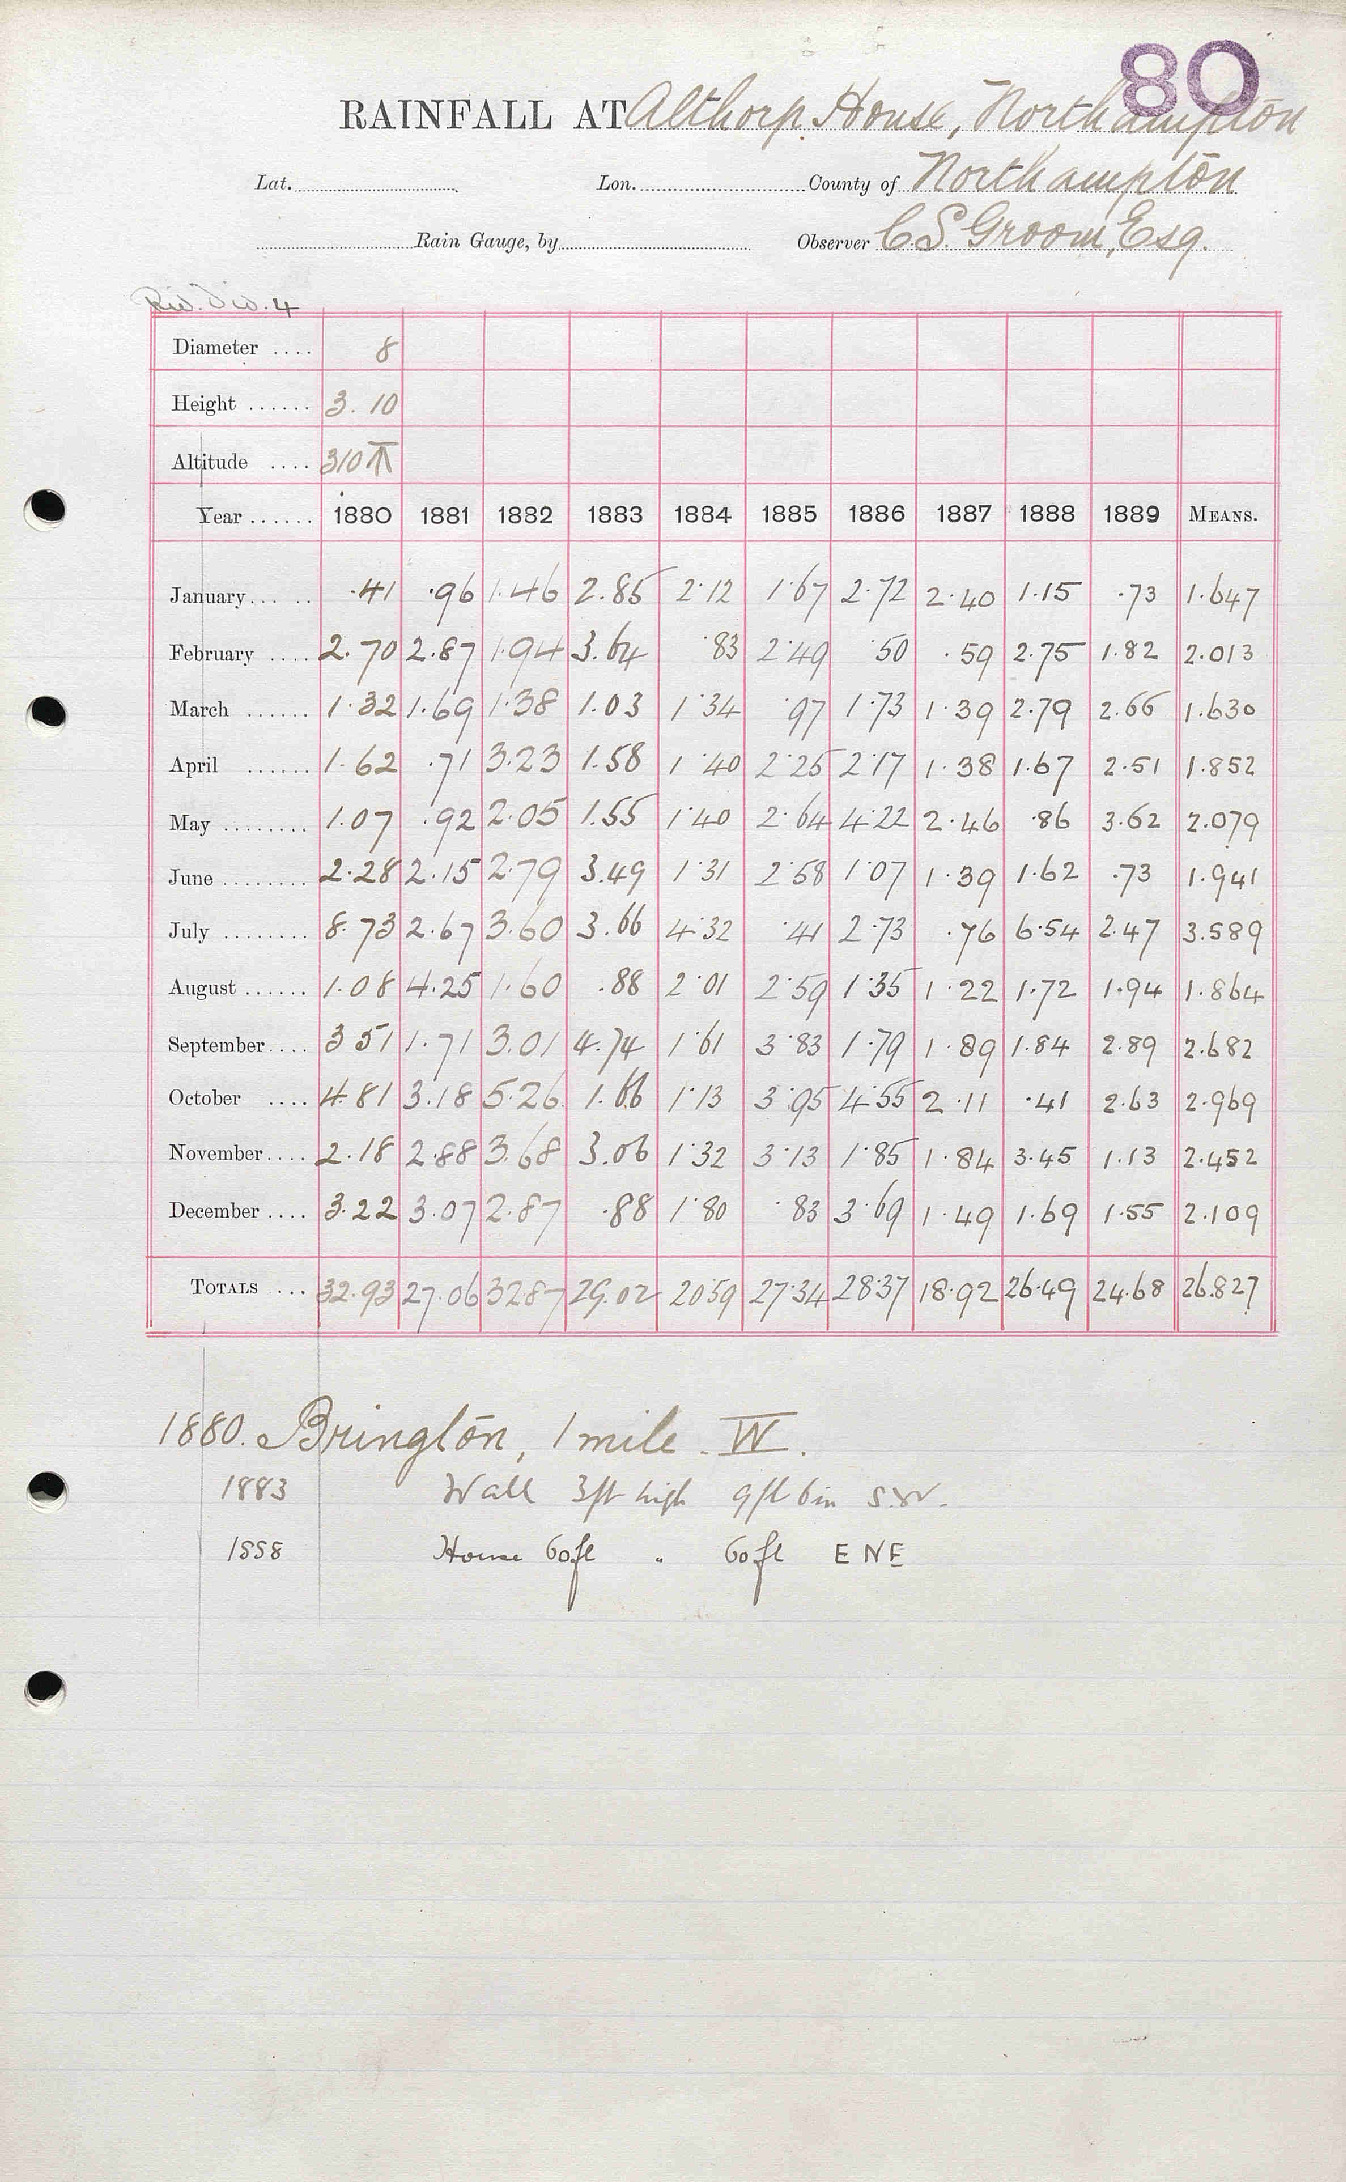 80
RAINFALL AT Althorp House, Northampton
Lat. Lon. County of Northampton
Rain Gauge, by Observer C.S. Groom, Esq.
Riv. Div. 4
Diameter .... 8
Height ...... 3. 10
Altitude .... 310
Year ...... 1880 1881 1882 1883 1884 1885 1886 1887 1888 1889 MEANS.
January ... .. .41 .96 1.46 2.85 2.12 1.67 2.72 2.40 1.15 .73 1.647
February .... 2.70 2.87 1.94 3.64 .83 2.49 .50 .59 2.75 1.82 2.013
March ...... 1.32 1.69 1.38 1.03 1.34 .97 1.73 1.39 2.79 2.66 1.630
April ...... 1.62 .71 3.23 1.58 1.40 2.25 2.17 1.38 1.67 2.51 1.852
May ........ 1.07 .92 2.05 1.55 1.40 2.64 4.22 2.46 .86 3.62 2.079
June ........ 2.28 2.15 2.79 3.49 1.31 2.58 1.07 1.39 1.62 .73 1.941
July ........ 8.73 2.67 3.60 3.66 4.32 .41 2.73 .76 6.54 2.47 3.589
August ...... 1.08 4.25 1.60 .88 2.01 2.59 1.35 1.22 1.72 1.94 1.864
September .... 3 51 1.71 3.01 4.74 1.61 3.83 1.79 1.89 1.84 2.89 2.682
October .... 4.81 3.18 5.26 1.66 1.13 3.95 4.55 2.11 .41 2.63 2.969
November .... 2.18 2.88 3.68 3.06 1.32 3.13 1.85 1.84 3.45 1.13 2.452
December .... 3.22 3.07 2.87 .88 1.80 .83 3.69 1.49 1.69 1.55 2.109
TOTALS ... 32.93 27.06 32.87 29.02 20.59 27.34 28.37 18.92 26.49 24.68 26.827
1880. Brington, 1 mile. W.
1883 Wall 3ft high 9ft 6in S.W.
1888 House 60ft " 60ft ENE